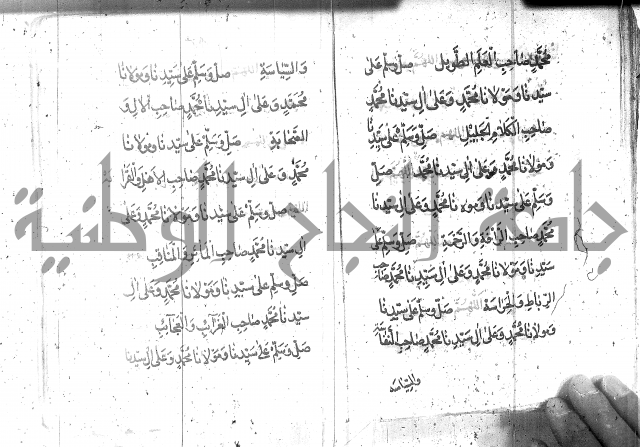 محمد صاحب العلم الطويل اللهم صل وسلم على
سيدنا ومولانا محمد وعلى ال سيدنا محمد
صاحب الكلام الجميل اللهم صل وسلم على سيدنا
ومولانا محمد وعلى ال سيدنا محمد اللهم صل
وسلم على سيدنا ومولانا محمد وعلى ال سيدنا
محمد صاحب الرأفة والرحمة اللهم صل وسلم على
سيدنا ومولانا محمد وعلى ال سيدنا محمد صاحب
الرباط والحراسة اللهم صل وسلم على سيدنا
ومولانا محمد وعلى ال سيدنا محمد صاحب
والسياسه
والسياسة اللهم صل وسلم على سيدنا ومولانا
محمد وعلى ال سيدنا محمد صاحب الال و
الصحابة اللهم صل وسلم على سيدنا ومولانا
محمد وعلى ال سيدنا محمد صاحب الاهل
اللهم صل وسلم على سيدنا ومولانا محمد وعلى
ال سيدنا محمد صاحب المأثر والمناقب
صل وسلم على سيدنا ومولانا محمد وعلى ال
سيدنا محمد صاحب الغرائب والعجائب
صل وسلم على سيدنا ومولانا محمد وعلى ال سيدنا
جامعة النجاح الوطنية